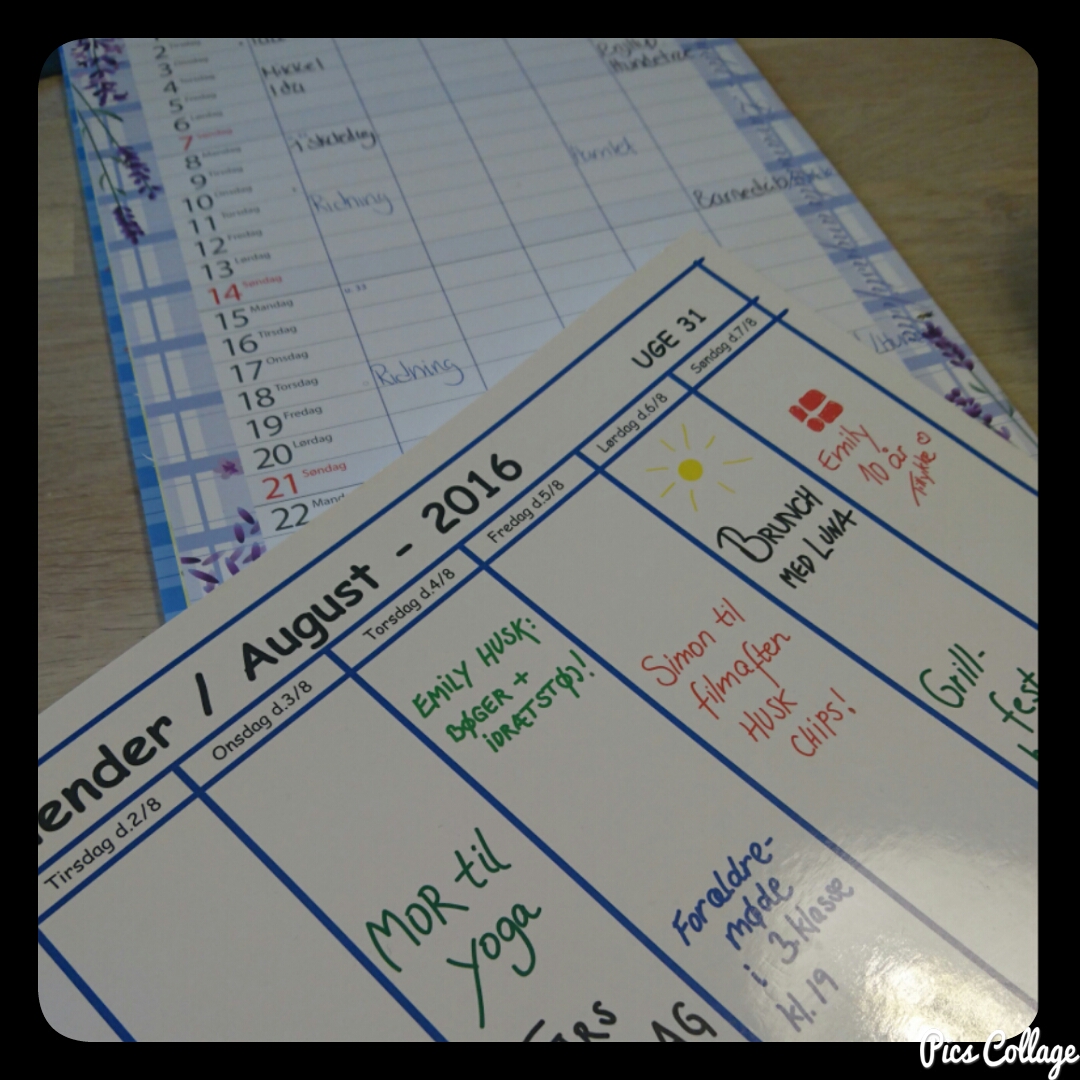 2
3
4
5
6
7 Søndag
8 Mandag
9 Tirsdag
10 Onsdag
11 Torsdag
12 Fredag
13 Lørdag
14 Søndag
15 Mandag
16 Tirsdag
17 Onsdag
18 Torsdag
19 Fredag
20 Lørdag
21 Søndag
22 Mand
Mikkel
Ida
Ridning
Ridning
ender / August - 2016
UGE 31
Tirsdag d.2/8
Onsdag d.3/8
Torsdag d.4/8
Fredag d.5/8
Lørdag d.6/8
Søndag d.7/8
MOR til
yoga
EMILY HUSK:
BØGER +
IDRÆTSTØJ!
FARS
AG
Simon til
filmaften
HUSK
CHIPS!
Forældre-
møde
i 3.klasse
kl.19
BRUNCH
MED LUNA
Emily
10 år
Grill-
fest
Pics Collage